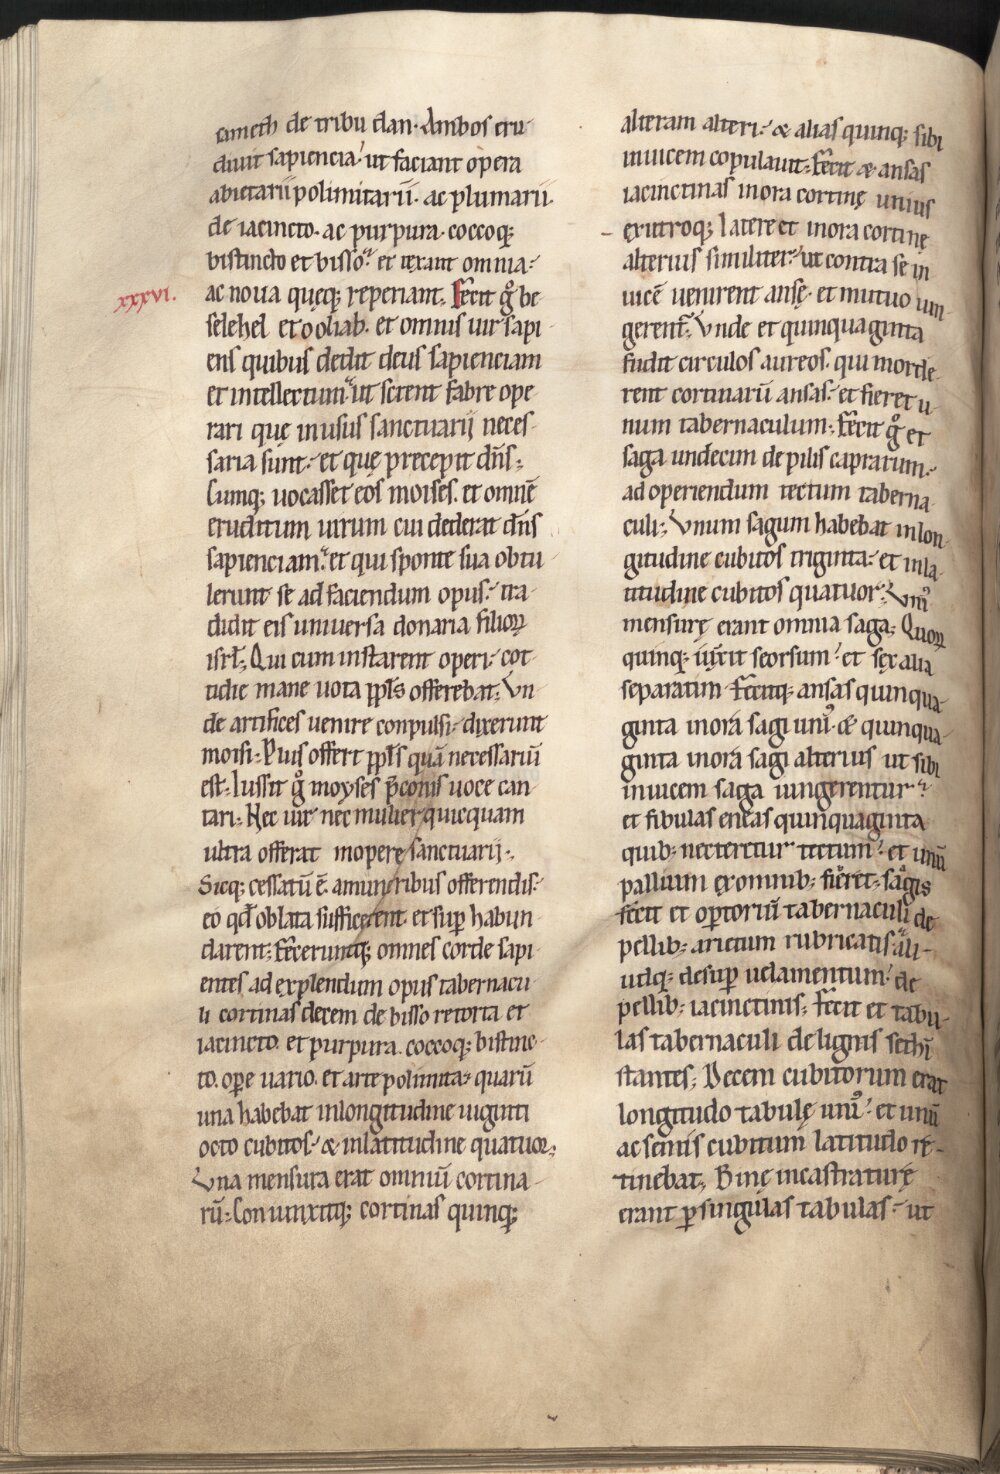 xxxvi.
ameth de tribu dan. Ambos eru-
diuit sapiencia. ut faciant opera
abietarii polimitarii. ac plumarii.
de iacincto. ac purpura. coccoq;
bistincto et bisso. et texant omnia.
ac noua quęq; reperiant. Fecit gͦ be-
selehel et ooliab. et omnis uir sapi-
ens quibus dedit deus sapienciam
et intellectum. ut scirent fabre ope-
rari quę in usus sanctuarij neces-
saria sunt. et quę precepit dn̄s.
Cumq; uocasset eos moises. et omnē
eruditum uirum cui dederat dn̄s
sapienciam. et qui sponte sua obtu-
lerunt se ad faciendum opus. tra-
didit eis uniuersa donaria filioꝝ
isrl̄. Qui cum instarent operi. cot-
tidie mane uota ppl̄s offerebat. Vn-
de artifices uenire conpulsi. dixerunt
moisi. Plus offert ppl̄s quā necessariū
est. Iussit gͦ moyses p̄conis uoce can-
tari. Nec uir nec mulier quicquam
ultra offerat in opere sanctuarij.
Sicq; cessatū ē. a muneribus offerendis.
eo qd̄ oblata sufficerent et suꝑ habun-
darent. Feceruntq; omnes corde sapi-
entes ad explendum opus tabernacu-
li cortinas decem de bisso retorta et
iacincto. et purpura. coccoq; bistinc-
to. oꝑe uario. et arte polimita. quarū
una habebat in longitudine uiginti
octo cubitos. & in latitudine quatuor.
Vna mensura erat omniū cortina-
rū. Coniunxitq; cortinas quinq;
alteram alteri. & alias quinq; sibi
inuicem copulauit. Fecit & ansas
iacinctinas in ora cortinę unius
ex utroq; latere et in ora cortinę
alterius similiter. ut contra se in
uicē uenirent ansę. et mutuo iun-
gerent̄. Vnde et quinquaginta
fudit circulos aureos. qui morde-
rent cortinarū ansas. et fieret u-
num tabernaculum. Fecit gͦ et
saga undecim de pilis caprarum.
ad operiendum tectum taberna-
culi. Vnum sagum habebat in lon-
gitudine cubitos triginta. et in la-
titudine cubitos quatuor. Vni᷒
mensurę erant omnia saga. Quoꝝ
quinq; iunxit seorsum. et sex alia
separatim. Fecitq; ansas quinqua-
ginta in ora sagi uni᷒. & quinqua-
ginta in ora sagi alterius ut sibi
inuicem saga iungerentur.
et fibulas eneas quinquaginta
quib; necteretur tectum. et unū
pallium ex omnib; fieret. sagis
fecit et oꝑtoriū tabernaculi de
pellib; arietum rubricatis. ali-
udq; desuꝑ uelamentum. de
pellib; iacinctinis. Fecit et tabu-
las tabernaculi de lignis sethī
stantes. Decem cubitorum erat
longitudo tabulę uni᷒. et unū
ac semis cubitum latitudo re-
tinebat. Binę incastraturę
erant ꝑ singulas tabulas. ut